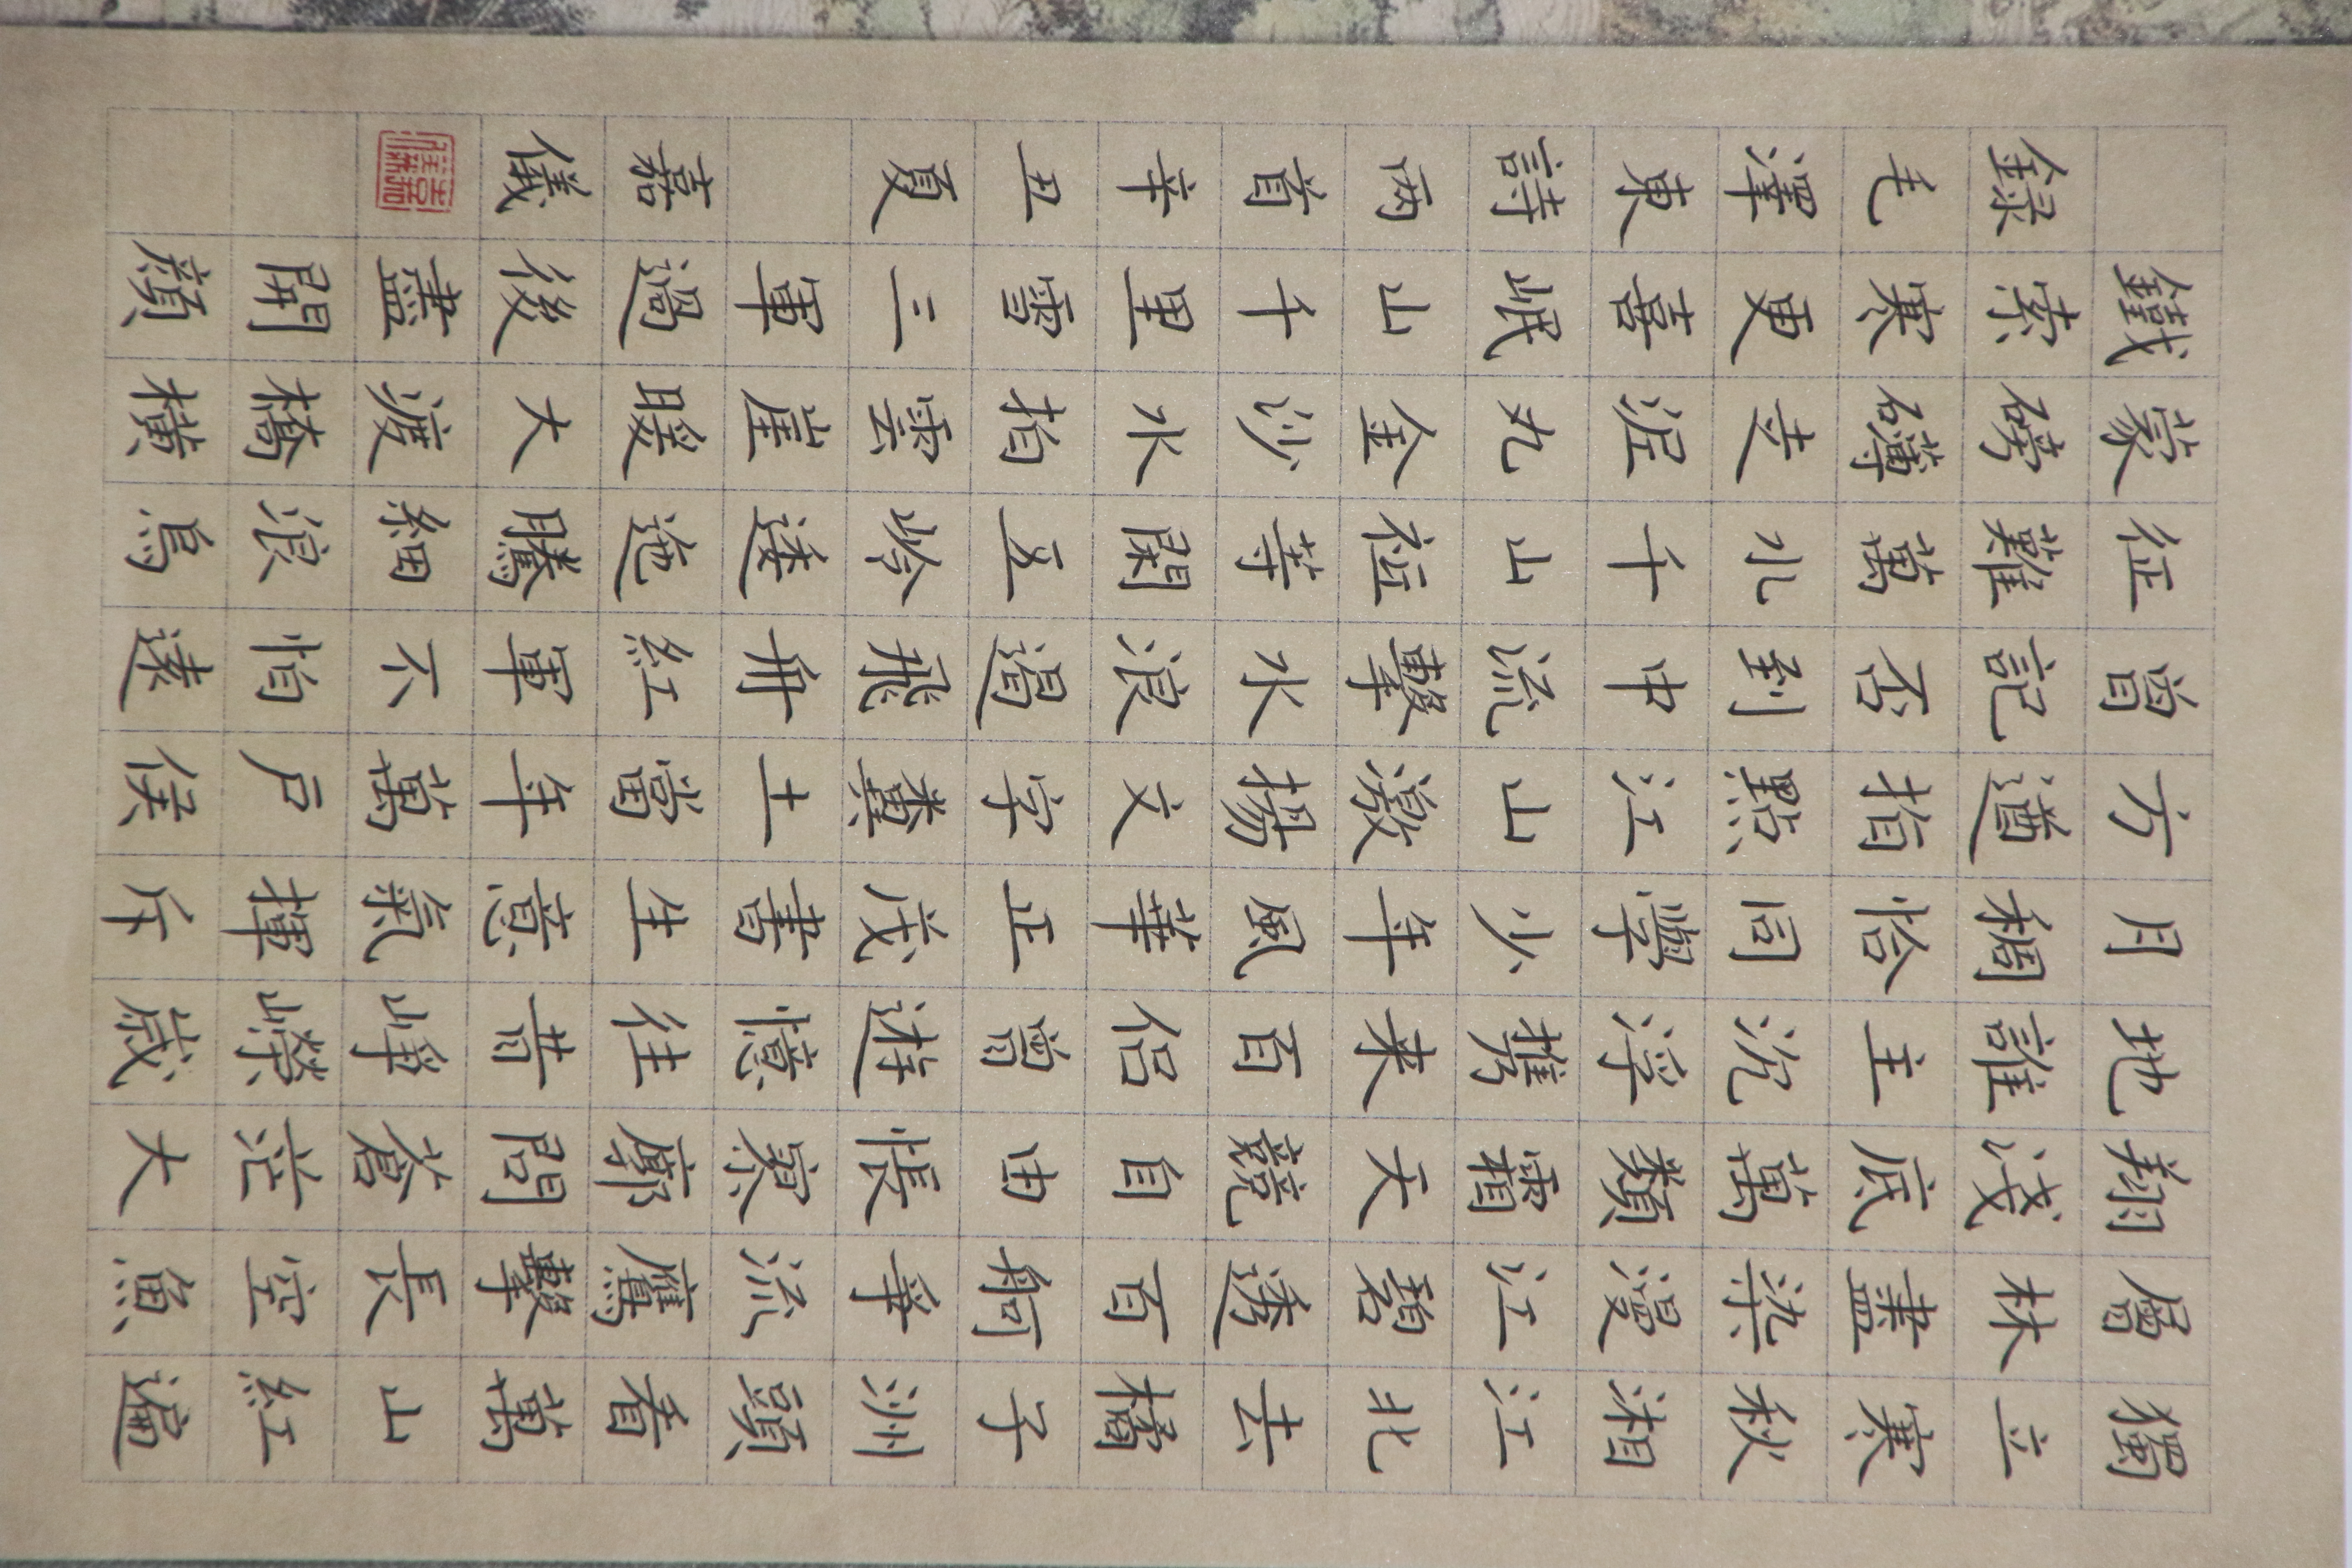 獨立寒秋湘江北去橘子洲頭看萬山紅遍
層林盡染漫江碧透百舸爭流鷹擊長空魚
翔淺底萬類霜天競自由悵寥廓問蒼茫大
地誰主沉浮携来百侶曾遊憶往昔崢嶸歲
月稠恰同學少年風華正茂書生意氣揮斥
方遒指點江山激揚文字糞土當年萬戶侯
曾記否到中流擊水浪遏飛舟紅軍不怕遠
征難萬水千山祗等閑五岭逶迤騰細浪烏
蒙磅礴走泥丸金沙水拍雲崖暖大渡橋橫
鐵索寒更喜岷山千里雪三軍過後盡開顏
録毛澤東詩两首辛丑夏 嘉儀
嘉儀